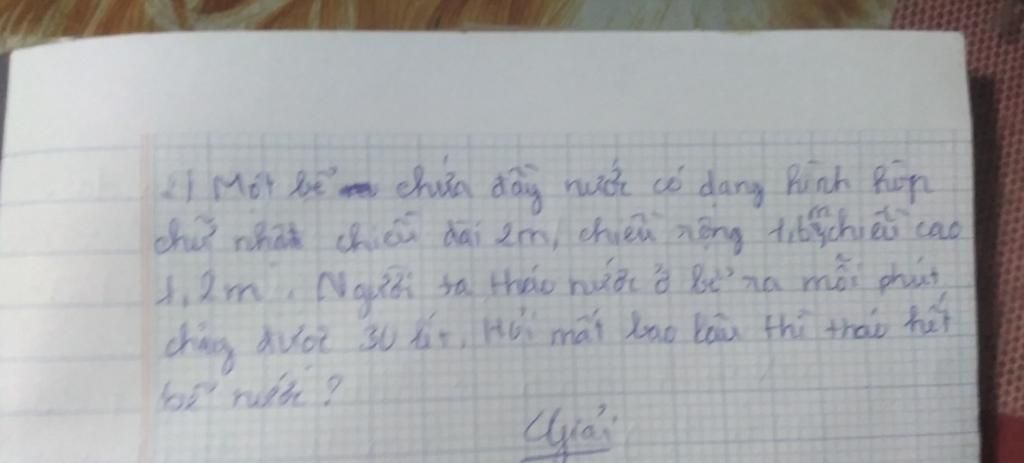 2) Một bể chứa đầy nước có dạng hình hộp
chữ nhật chiều dài 2m, chiều rộng chiều cao
1,2m. Người ta tháo nước ở bể ra mỗi phút
chảy được 30 lít, Hỏi mất bao lâu thì tháo hết
bể nước?
Giải